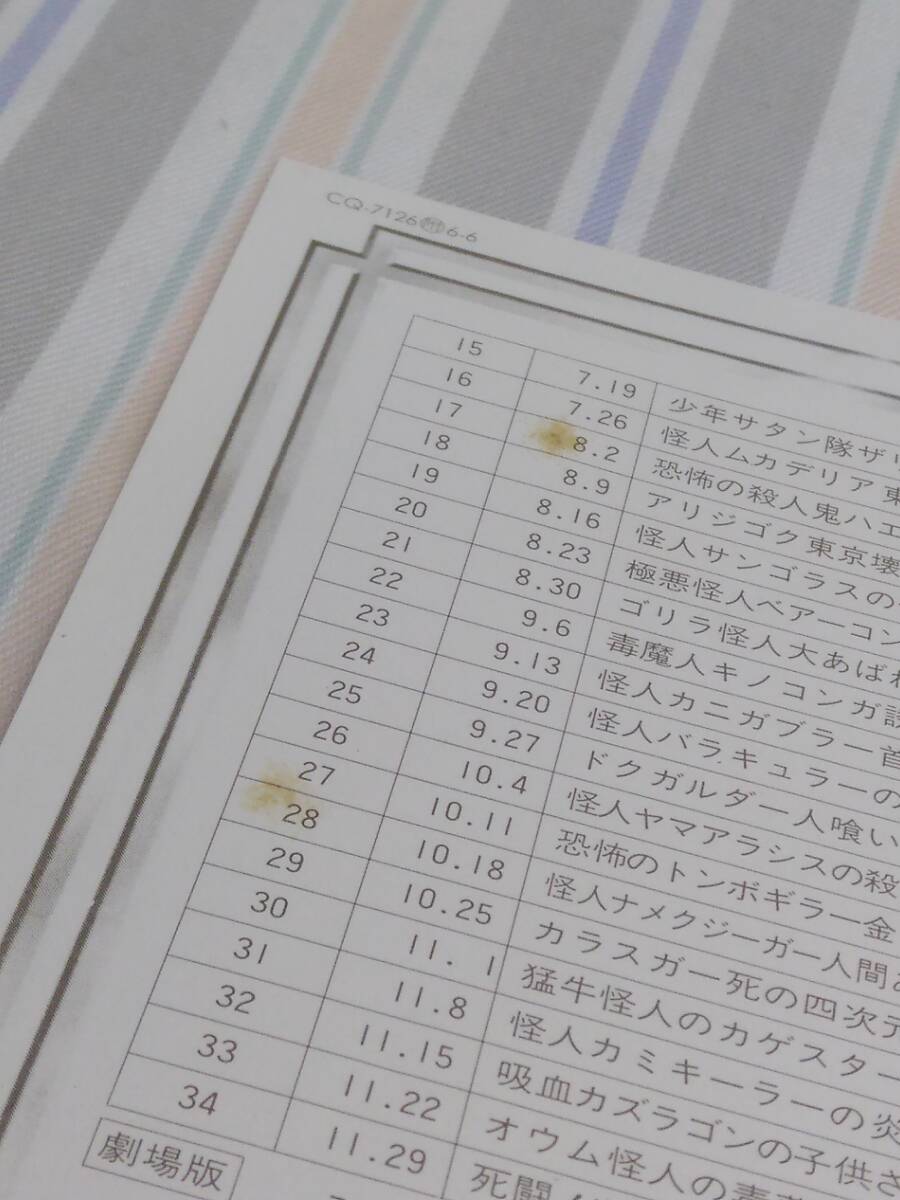 CQ-7126 6-6
15 7.19 少年サタン隊ザリ
16 7.26 怪人ムカデリア東
17 8.2 恐怖の殺人鬼ハエ
18 8.9 アリジゴク東京壊
19 8.16 怪人サンゴラスの
20 8.23 極悪怪人ベアーコン
21 8.30 ゴリラ怪人大あばれ
22 9.6 毒魔人キノコンガ
23 9.13 怪人カニガブラー首
24 9.20 怪人バラキュラーの
25 9.27 ドクガルダー人喰い
26 10.4 怪人ヤマアラシスの殺
27 10.11 恐怖のトンボギラー金
28 10.18 怪人ナメクジーガー人間
29 10.25 カラスガー死の四次元
30 11.1 猛牛怪人のカゲスター
31 11.8 怪人カミキーラーの炎
32 11.15 吸血カズラゴンの子供さ
33 11.22 オウム怪人の毒
34 11.29 死闘
劇場版